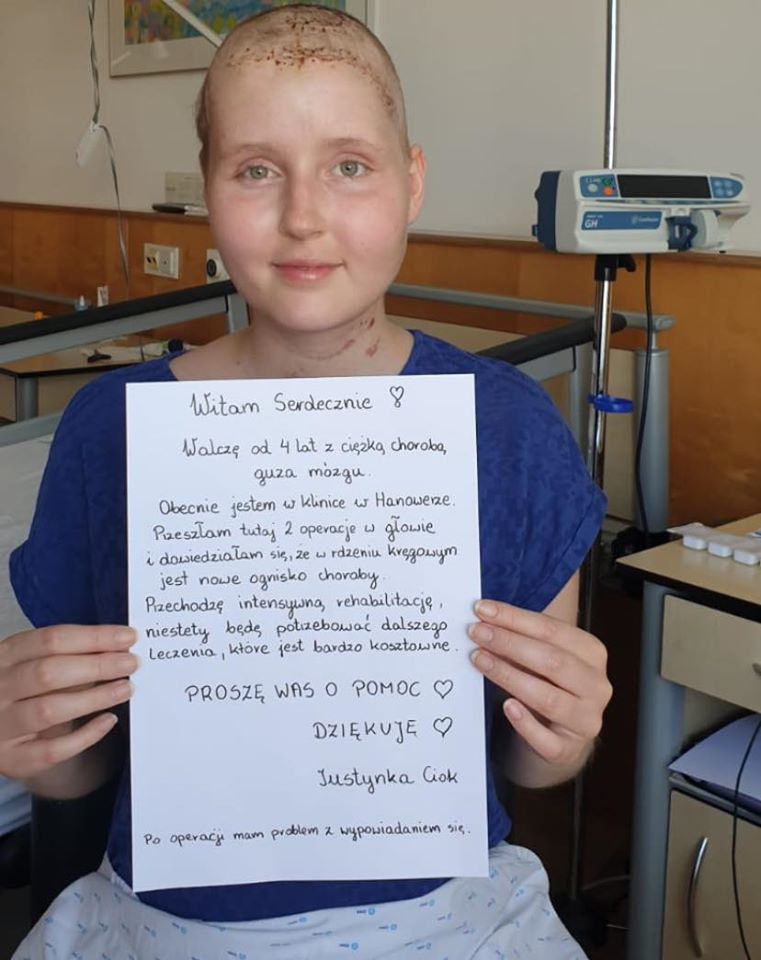 Witam Serdecznie ♡
Walczę od 4 lat z ciężką chorobą
guza mózgu.
Obecnie jestem w klinice w Hanowerze.
Przeszłam tutaj 2 operacje w głowie
i dowiedziałam się, że w rdzeniu kręgowym
jest nowe ognisko choroby.
Przechodzę intensywną rehabilitację,
niestety będę potrzebować dalszego
leczenia, które jest bardzo kosztowne.
PROSZĘ WAS O POMOC ♡
DZIĘKUJĘ ♡
Justynka Ciok
Po operacji mam problem z wypowiadaniem się.
GH